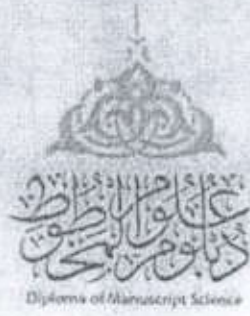 دبلوم علوم المخطوط
Diploma of Manuscript Science